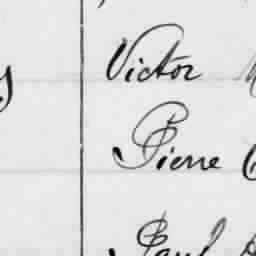 Victor
Pierre
Paul